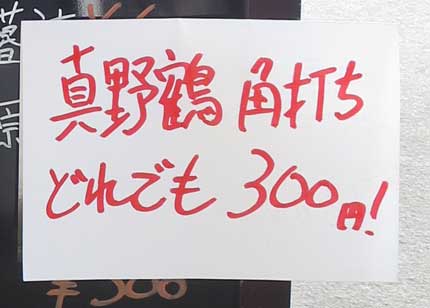 真野鶴 角打ち
どれでも 300円!
¥300